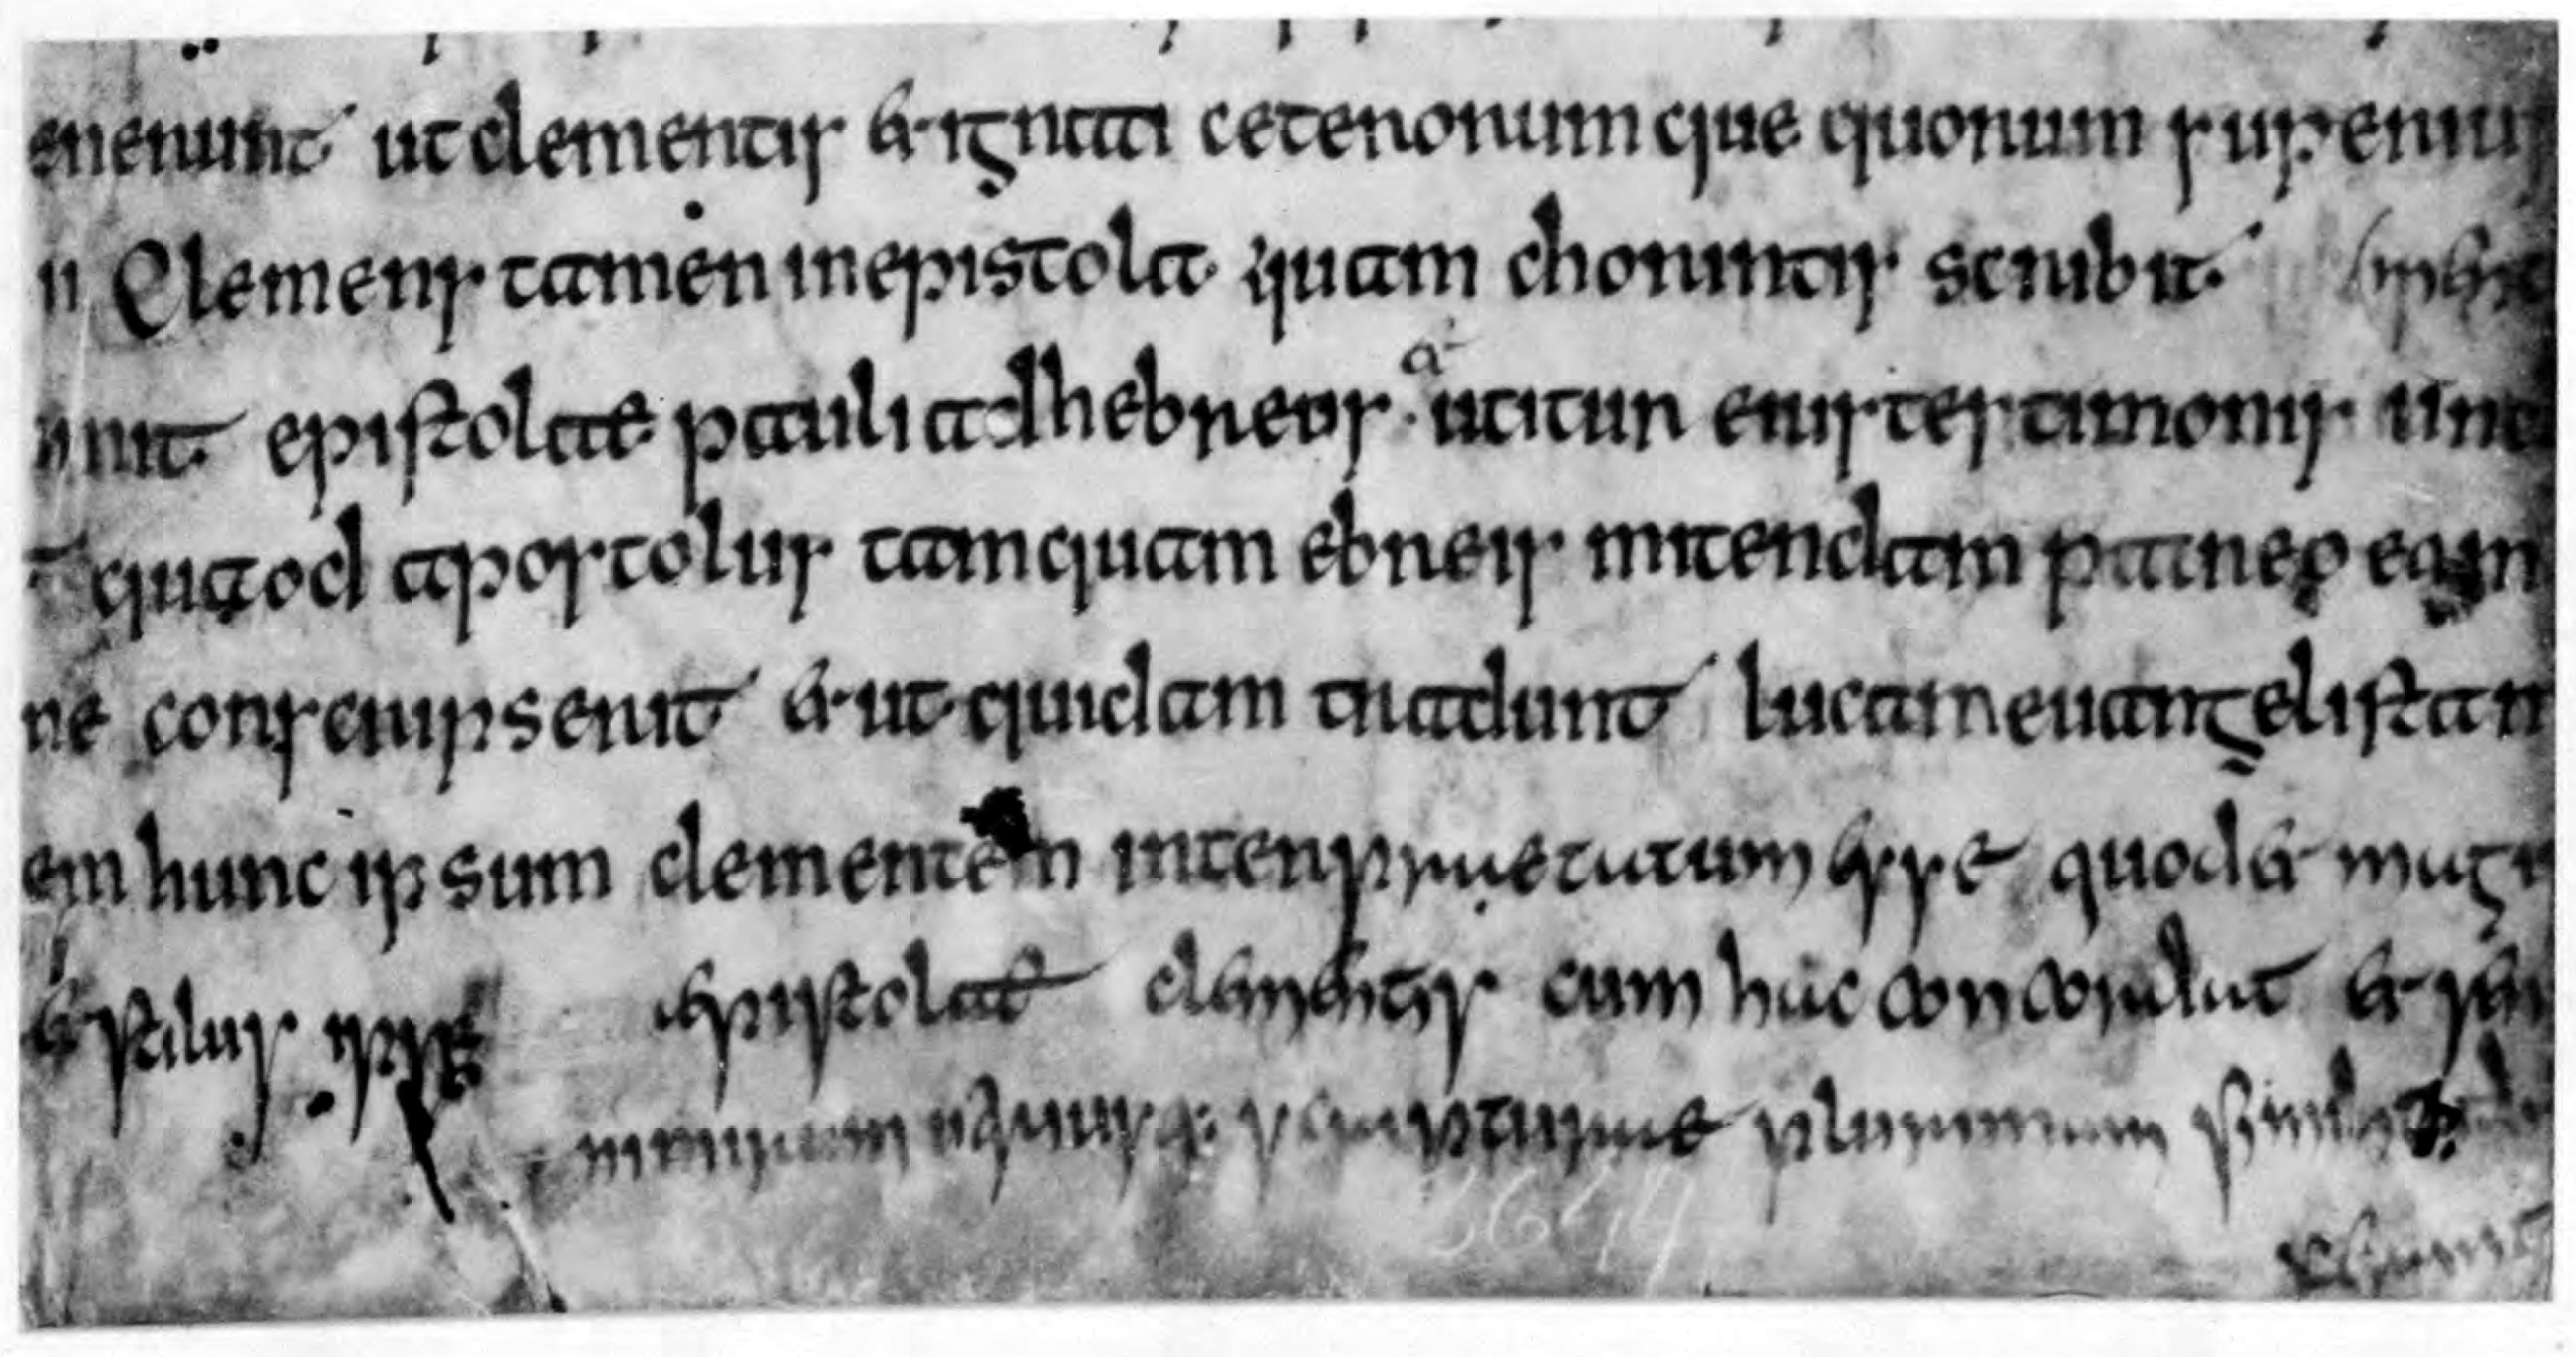 ererunt ut clementis et ignati ceterorum que quorum superiu
Clemens tamen in epistola quam chorintis scribit
epistolae pauli ad hebreos et utitur eius testimoniis
quaod apostolus tamquam ebreis mitendam patreo eam
ne conscripserit et ut quidam tradunt lucam euangelistam
em hunc ipsum clementem interpraetatum esse quod et magi
stilus ipse epistolae clementis cum hac concordat et
scripturae plurimum
3644